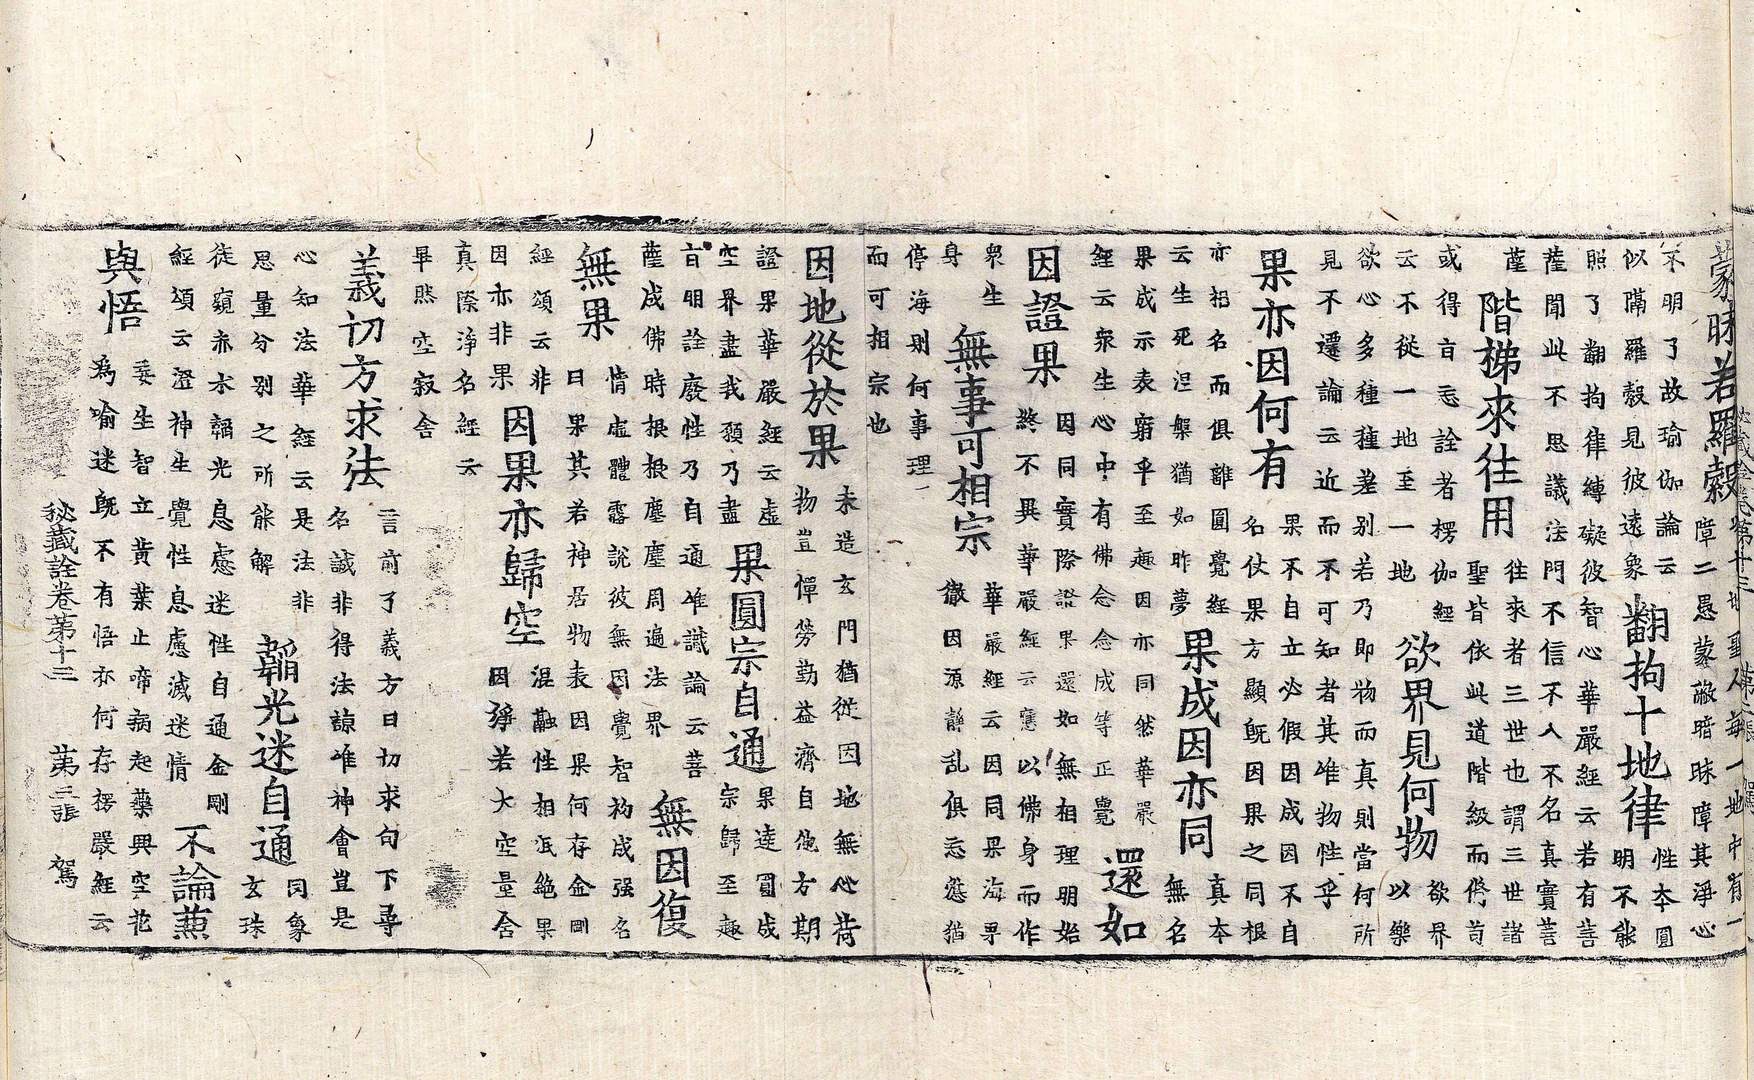 秘藏詮卷第十三 第二張 駕
蒙昧若羅縠
地聖人每一地中有一
障二愚蒙蔽暗昧障其淨心
不明了故瑜伽論云
似隔羅縠見彼遠象
翻拘十地律
性夲圓
明不能
照了翻拘律縛礙彼智心華嚴經云若有菩
薩聞此不思議法門不信不入不名真實菩
薩
階梯來往用
往來者三世也謂三世諸
聖皆依此道階級而修
或得㫖忘詮者楞伽經
云不從一地至一地
欲界見何物
欲界
以樂
欲心多種種差別若乃即物而真則當何所
見不遷論云近而不可知者其唯物性乎
果亦因何有
果不自立必假因成因不自
名仗果方顯既因果之同根
亦相名而俱離圓覺經
云生死涅槃猶如昨夢
果成因亦同
真夲
無名
果成示表窮乎至趣因亦同然華嚴
經云衆生心中有佛念念成等正覺
還如
因證果
因同實際證果還如無相理明始
終不異華嚴經云應以佛身而作
衆生
身
無事可相宗
華嚴經云因同果海果
徹因源靜乱俱忘愆猶
停海別何事理
而可相宗也
因地從於果
未造玄門猶從因地無心荷
物豈憚勞勤益濟自他方期
證果華嚴經云虛
空界盡我願乃盡
果圓宗自通
果逵圓成
宗歸至趣
㫖明詮廢性乃自通唯識論云菩
薩成佛時根根塵塵周遍法界
無因復
無果
情虛體露說彼無因覺智礿成强名
曰果其若神居物表因果何存金剛
經頌云非
因亦非果
因果亦歸空
混融性相泯絶果
因殄若大空量舍
真際淨名經云
畢然空寂舍
義切方求法
言前了義方曰切求句下尋
名誠非得法諒唯神會豈是
心知法華經云是法非
思量分別之所能解
韜光迷自通
罔象
玄珠
徒窺赤水韜光息慮迷性自通金剛
經頌云澄神生覺性息慮滅迷情
不論
與悟
委生智立黄葉止啼病起藥興空花
為喻迷既不有悟亦何存楞嚴經云
秘藏詮卷第十三 第三張 駕